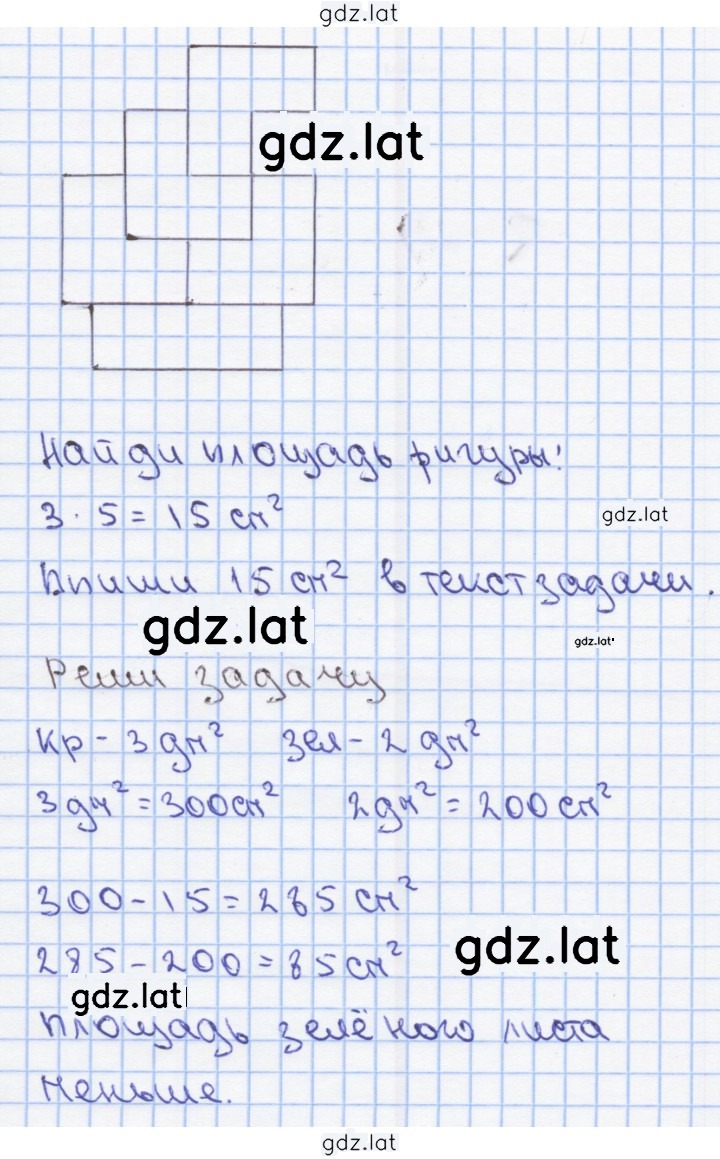 gdz.lat
gdz.lat
Найди площадь фигуры!
3 · 5 = 15 см²
gdz.lat
Впиши 15 см² в текст задачи.
gdz.lat
gdz.lat
Реши задачу
кр - 3 дм² зел - 2 дм²
3 дм² = 300 см² 2 дм² = 200 см²
300 - 15 = 285 см²
285 - 200 = 85 см²
gdz.lat
gdz.lat
площадь зелёного листа
меньше.
gdz.lat